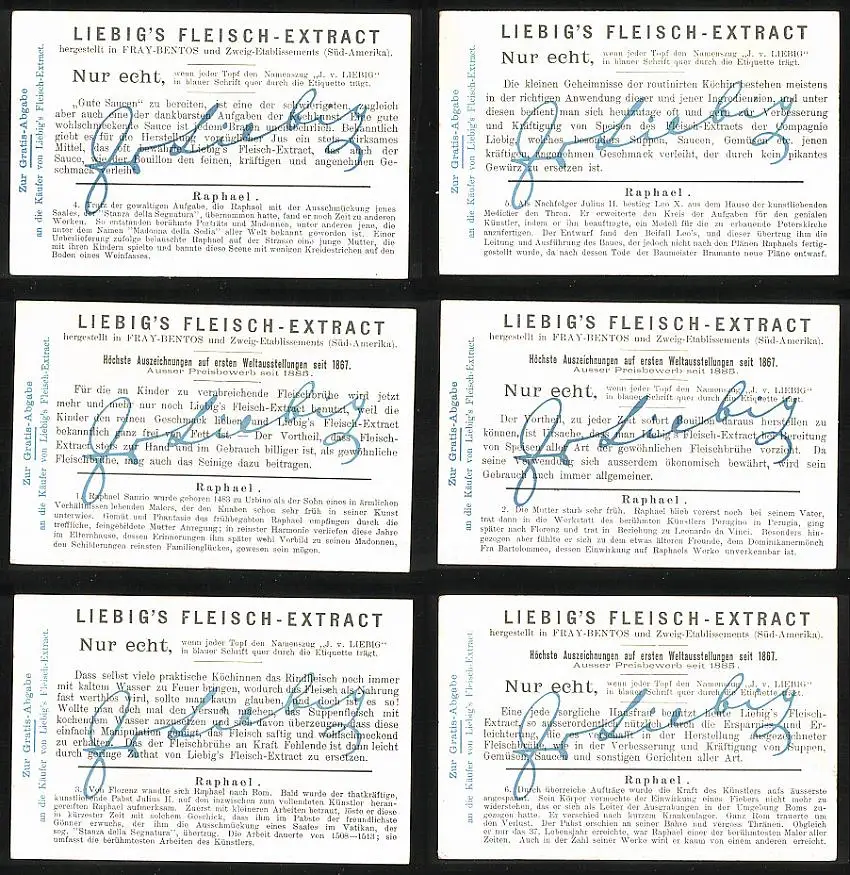 LIEBIG'S FLEISCH-EXTRACT
hergestellt in FRAY-BENTOS und Zweig-Etablissements (Süd-Amerika).
Nur echt, wenn jeder Topf den Namenszug „J. v. LIEBIG"
in blauer Schrift quer durch die Etiquette trägt.
„Gute Saucen" zu bereiten, ist eine der schwierigsten, zugleich
aber auch eine der dankbarsten Aufgaben der Kochkunst. Eine gute
wohlschmeckende Sauce ist jedem Braten unentbehrlich. Bekanntlich
giebt es für die Herstellung vorzüglicher Jus ein stets wirksames
Mittel, das oft bewährte Liebig's Fleisch-Extract, das auch der
Sauce, wie der Bouillon den feinen, kräftigen und angenehmen Ge-
schmack verleiht.
Raphael.
4. Trotz der gewaltigen Aufgabe, die Raphael mit der Ausschmückung jenes
Saales, der "Stanza della Segnatura", übernommen hatte, fand er noch Zeit zu anderen
Werken. So entstanden berühmte Porträts und Madonnen, unter anderen jene, die
unter dem Namen "Madonna della Sedia" aller Welt bekannt geworden ist. Einer
Ueberlieferung zufolge belauschte Raphael auf der Strasse eine junge Mutter, die
mit ihren Kindern spielte und bannte diese Scene mit wenigen Kreidestrichen auf den
Boden eines Weinfasses.
Zur Gratis-Abgabe
an die Käufer von Liebig's Fleisch-Extract.
J v Liebig
LIEBIG'S FLEISCH-EXTRACT
Nur echt, wenn jeder Topf den Namenszug „J. v. LIEBIG"
in blauer Schrift quer durch die Etiquette trägt.
Die kleinen Geheimnisse der routinirten Köchin bestehen meistens
in der richtigen Anwendung dieser und jener Ingredienzien, und unter
diesen bedient man sich heutzutage oft und gern zur Verbesserung
und Kräftigung von Speisen des Fleisch-Extracts der Compagnie
Liebig, welches besonders Suppen, Saucen, Gemüsen etc. jenen
kräftigen, angenehmen Geschmack verleiht, der durch kein pikantes
Gewürz zu ersetzen ist.
Raphael.
5. Als Nachfolger Julius II. bestieg Leo X. aus dem Hause der kunstliebenden
Medicäer den Thron. Er erweiterte den Kreis der Aufgaben für den genialen
Künstler, indem er ihn beauftragte, ein Modell für die zu erbauende Peterskirche
anzufertigen. Der Entwurf fand den Beifall Leo's, und dieser übertrug ihm die
Leitung und Ausführung des Baues, der jedoch nicht nach den Plänen Raphaels fertig-
gestellt wurde, da nach dessen Tode der Baumeister Bramante neue Pläne entwarf.
Zur Gratis-Abgabe
an die Käufer von Liebig's Fleisch-Extract.
J v Liebig
LIEBIG'S FLEISCH-EXTRACT
hergestellt in FRAY-BENTOS und Zweig-Etablissements (Süd-Amerika).
Höchste Auszeichnungen auf ersten Weltausstellungen seit 1867.
Ausser Preisbewerb seit 1885.
Für die an Kinder zu verabreichende Fleischbrühe wird jetzt
mehr und mehr nur noch Liebig's Fleisch-Extract benutzt, weil die
Kinder den reinen Geschmack lieben und Liebig's Fleisch-Extract
bekanntlich ganz frei von Fett ist. Der Vortheil, dass Fleisch-
Extract stets zur Hand und im Gebrauch billiger ist, als gewöhnliche
Fleischbrühe, mag auch das Seinige dazu beitragen.
Raphael.
1. Raphael Sanzio wurde geboren 1483 zu Urbino als der Sohn eines in ärmlichen
Verhältnissen lebenden Malers, der den Knaben schon sehr früh in seiner Kunst
unterwies. Gemüt und Phantasie des frühbegabten Raphael empfingen durch die
treffliche, feingebildete Mutter Anregung; in reinster Harmonie verliefen diese Jahre
im Elternhause, dessen Erinnerungen ihm später wohl Vorbild zu seinen Madonnen,
den Schilderungen reinsten Familienglückes, gewesen sein mögen.
Zur Gratis-Abgabe
an die Käufer von Liebig's Fleisch-Extract.
J v Liebig
LIEBIG'S FLEISCH-EXTRACT
hergestellt in FRAY-BENTOS und Zweig-Etablissements (Süd-Amerika).
Höchste Auszeichnungen auf ersten Weltausstellungen seit 1867.
Ausser Preisbewerb seit 1885.
Nur echt, wenn jeder Topf den Namenszug „J. v. LIEBIG"
in blauer Schrift quer durch die Etiquette trägt.
Der Vortheil, zu jeder Zeit sofort Bouillon daraus herstellen zu
können, ist Ursache, dass man Liebig's Fleisch-Extract zur Bereitung
von Speisen aller Art der gewöhnlichen Fleischbrühe vorzieht. Da
seine Verwendung sich ausserdem ökonomisch bewährt, wird sein
Gebrauch auch immer allgemeiner.
Raphael.
2. Die Mutter starb sehr früh. Raphael blieb vorerst noch bei seinem Vater,
trat dann in die Werkstatt des berühmten Künstlers Perugino in Perugia, ging
später nach Florenz und trat in Beziehung zu Leonardo da Vinci. Besonders hin-
gezogen aber fühlte er sich zu dem etwas älteren Freunde, dem Dominikanermönch
Fra Bartolommeo, dessen Einwirkung auf Raphaels Werke unverkennbar ist.
Zur Gratis-Abgabe
an die Käufer von Liebig's Fleisch-Extract.
J v Liebig
LIEBIG'S FLEISCH-EXTRACT
Nur echt, wenn jeder Topf den Namenszug „J. v. LIEBIG"
in blauer Schrift quer durch die Etiquette trägt.
Dass selbst viele praktische Köchinnen das Rindfleisch noch immer
mit kaltem Wasser zu Feuer bringen, wodurch das Fleisch als Nahrung
fast werthlos wird, sollte man kaum glauben, und doch ist es so!
Wollte man doch mal den Versuch machen, das Suppenfleisch mit
kochendem Wasser anzusetzen und sich davon überzeugen, dass diese
einfache Manipulation genügt, das Fleisch saftig und wohlschmeckend
zu erhalten. Das der Fleischbrühe an Kraft Fehlende ist dann leicht
durch geringe Zuthat von Liebig's Fleisch-Extract zu ersetzen.
Raphael.
3. Von Florenz wandte sich Raphael nach Rom. Bald wurde der thatkräftige,
kunstliebende Pabst Julius II. auf den inzwischen zum vollendeten Künstler heran-
gereiften Raphael aufmerksam. Zuerst mit kleineren Arbeiten betraut, löste er diese
in kürzester Zeit mit solchem Geschick, dass ihm im Pabste der freundlichste
Gönner erwuchs, der ihm die Ausschmückung eines Saales im Vatikan, der
sog. "Stanza della Segnatura", übertrug. Die Arbeit dauerte von 1508—1513; sie
umfasst die berühmtesten Arbeiten des Künstlers.
Zur Gratis-Abgabe
an die Käufer von Liebig's Fleisch-Extract.
J v Liebig
LIEBIG'S FLEISCH-EXTRACT
hergestellt in FRAY-BENTOS und Zweig-Etablissements (Süd-Amerika).
Höchste Auszeichnungen auf ersten Weltausstellungen seit 1867.
Ausser Preisbewerb seit 1885.
Nur echt, wenn jeder Topf den Namenszug „J. v. LIEBIG"
in blauer Schrift quer durch die Etiquette trägt.
Eine jede sorgliche Hausfrau benutzt heute Liebig's Fleisch-
Extract, so ausserordentlich nützlich durch die Ersparniss und Er-
leichterung, die es schafft in der Herstellung ausgezeichneter
Fleischbrühe, wie in der Verbesserung und Kräftigung von Suppen,
Gemüsen, Saucen und sonstigen Gerichten aller Art.
Raphael.
6. Durch überreiche Aufträge wurde die Kraft des Künstlers aufs äusserste
angespannt. Sein Körper vermochte der Einwirkung eines Fiebers nicht mehr zu
widerstehen, das er sich als Leiter der Ausgrabungen in der Umgebung Roms zu-
gezogen hatte. Er verschied nach kurzem Krankenlager. Ganz Rom trauerte um
den Verlust. Der Pabst erschien an seiner Bahre und vergoss Thränen. Obgleich
er nur das 37. Lebensjahr erreichte, war Raphael einer der berühmtesten Maler aller
Zeiten. Auch in der Zahl seiner Werke wird er kaum von einem anderen erreicht.
Zur Gratis-Abgabe
an die Käufer von Liebig's Fleisch-Extract.
J v Liebig